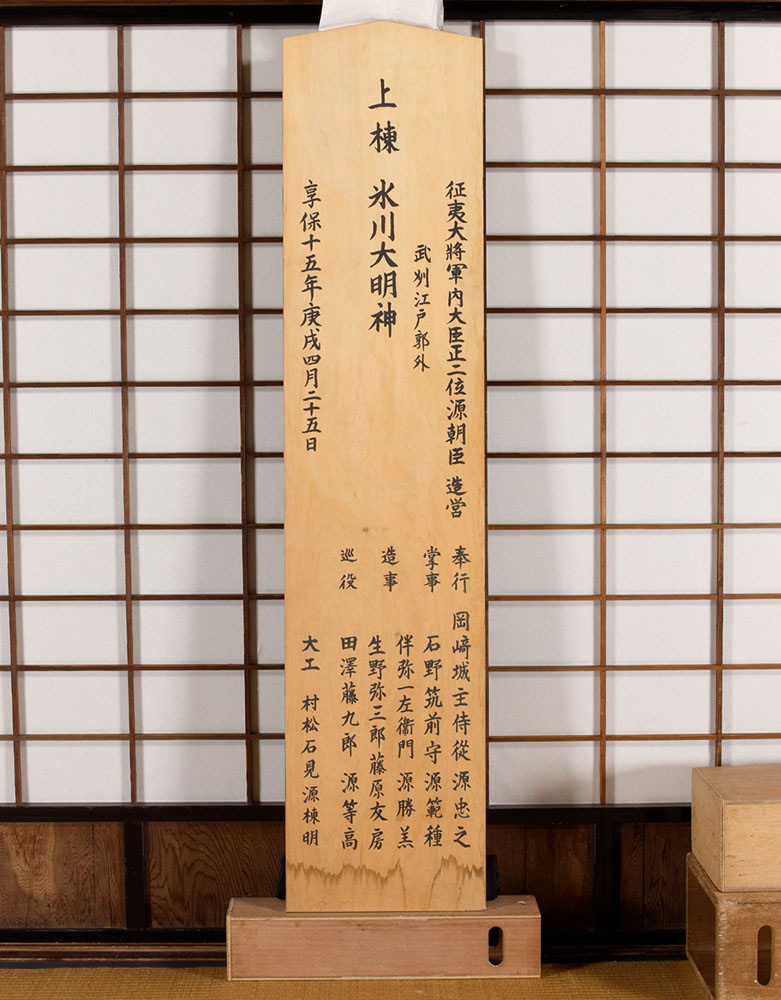 征夷大將軍内大臣正二位源朝臣 造営
武刕江戸郭外
上棟 氷川大明神
享保十五年庚戌四月二十五日
奉行 岡﨑城主侍從 源忠之
掌事 石野筑前守 源範種
伴弥一左衞門 源勝羔
造事 生野弥三郎 藤原友房
巡役 田澤藤九郎 源等高
大工 村松石見 源棟明